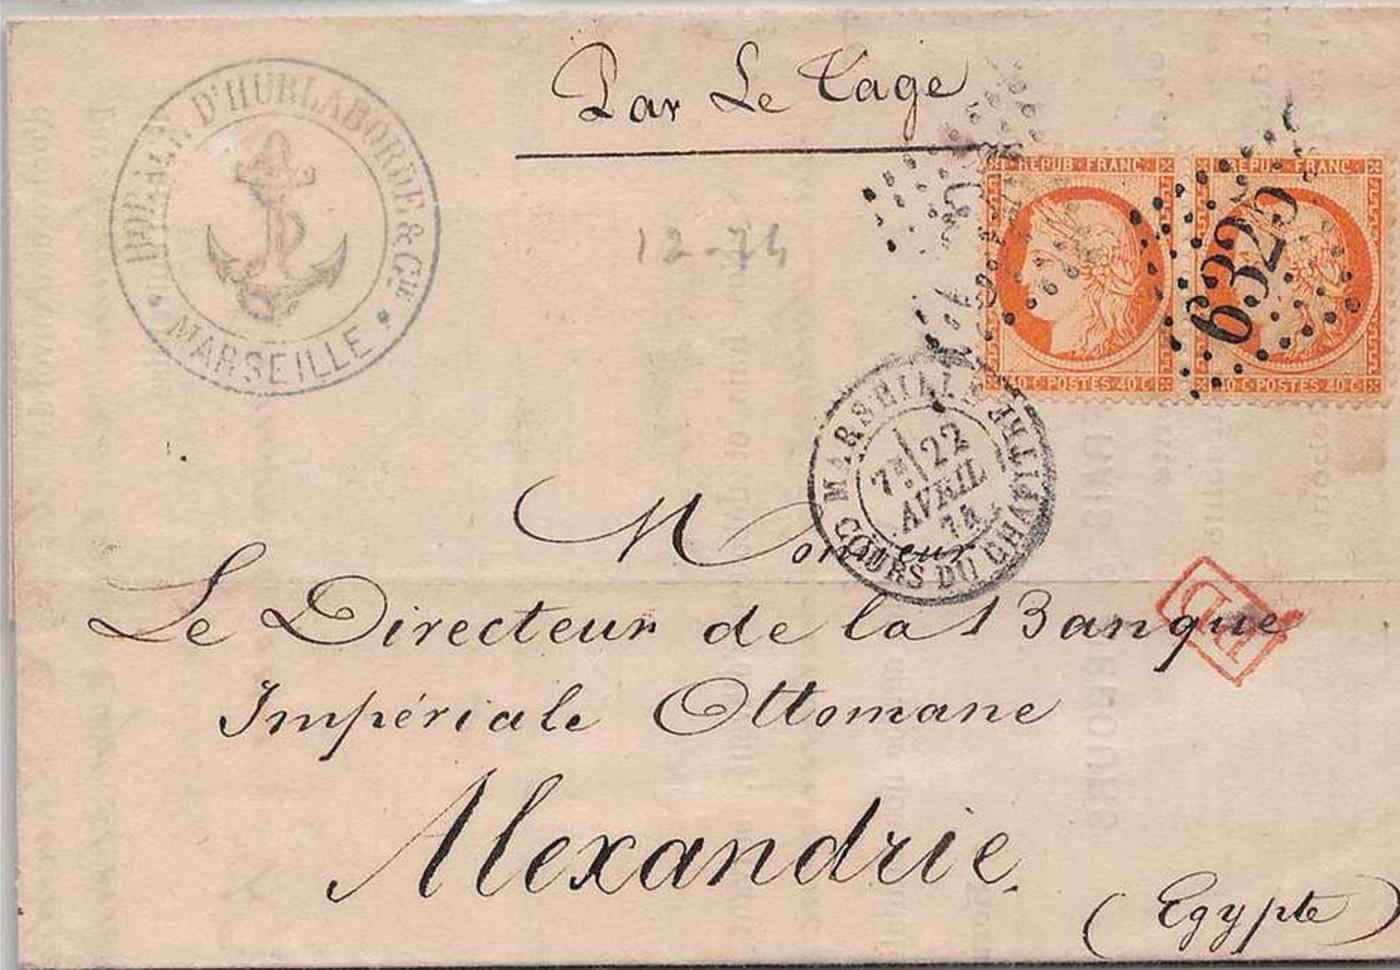 Par Le Tage
D'HURLABORDE & Cie
MARSEILLE
12-74
REPUB·FRANC·
40 C·POSTES·40 C
REPUB·FRANC·
40 C·POSTES·40 C
6325
MARSEILLE
COURS DU CHAPITRE
7E 22
AVRIL
74
Monsieur
Le Directeur de la Banque
PD
Impériale Ottomane
Alexandrie.
(Egypte)